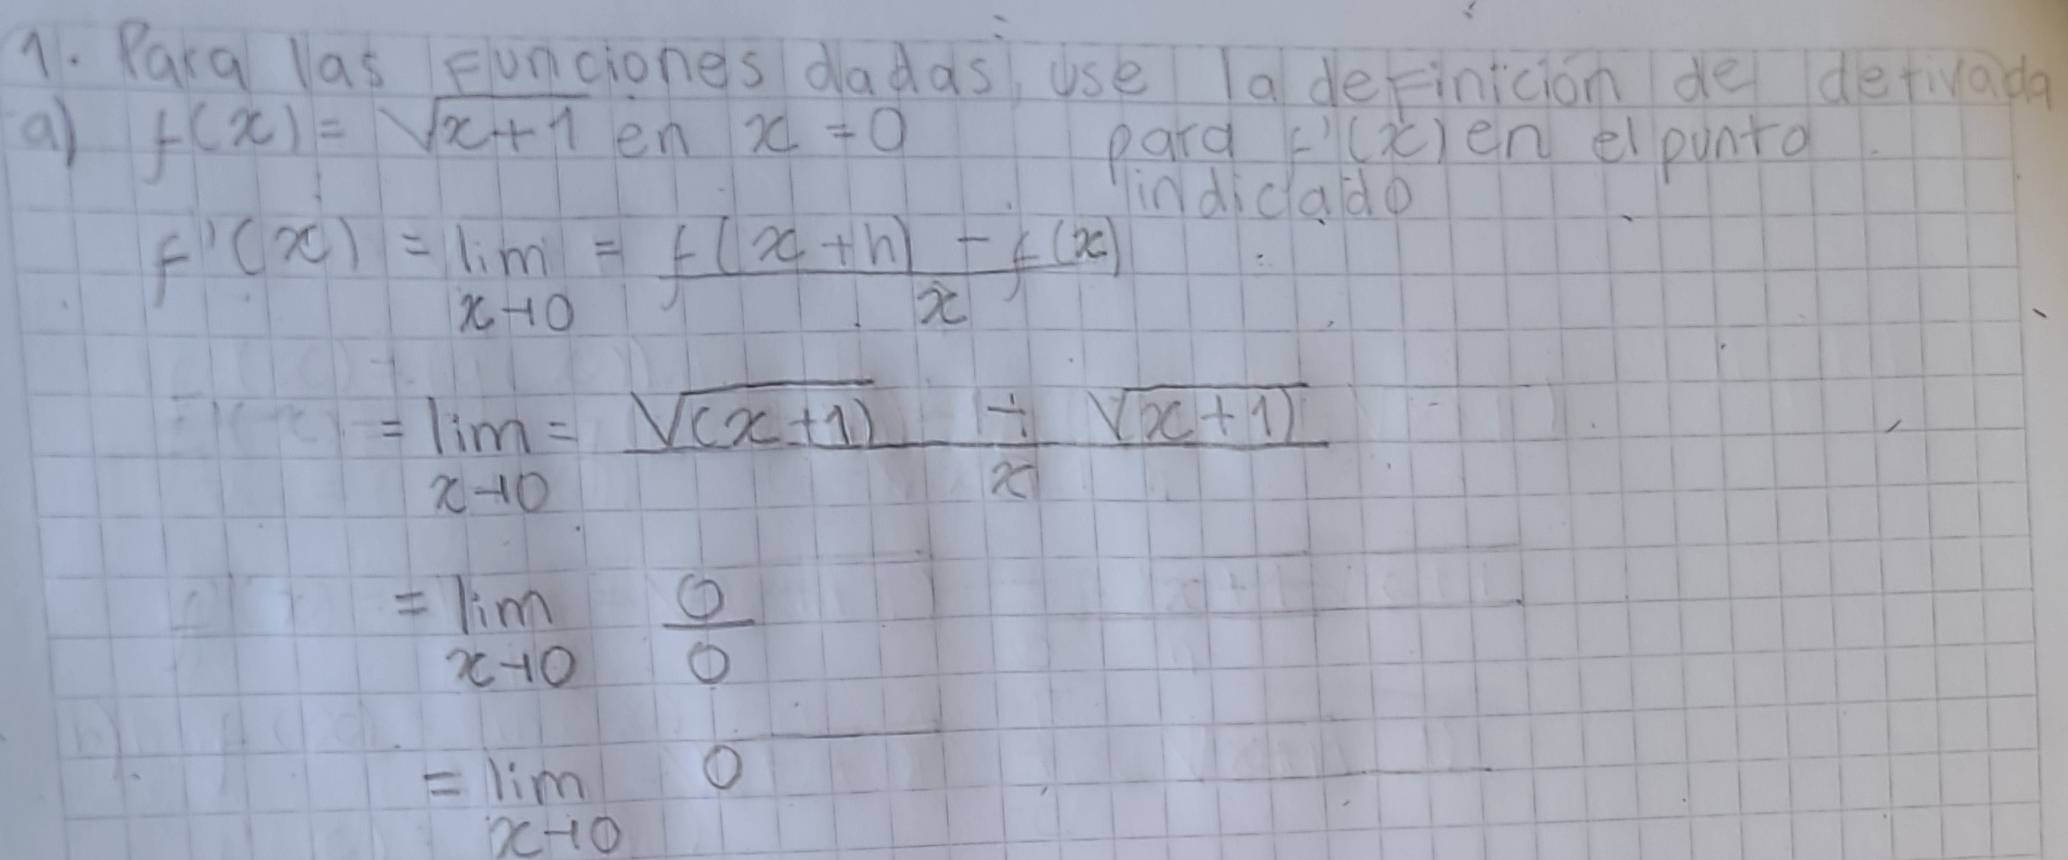 1. Para las funciones dadas, use la definición de derivada
para f'(x) en el punto
indicado
a) f(x) = √x+1 en x = 0
f'(x) = lim = f(x+h) - f(x)
x→0 x
= lim = √(x+1) ÷ √x+1)
x→0 x
= lim 0
x→0 0
= lim 0
x→0